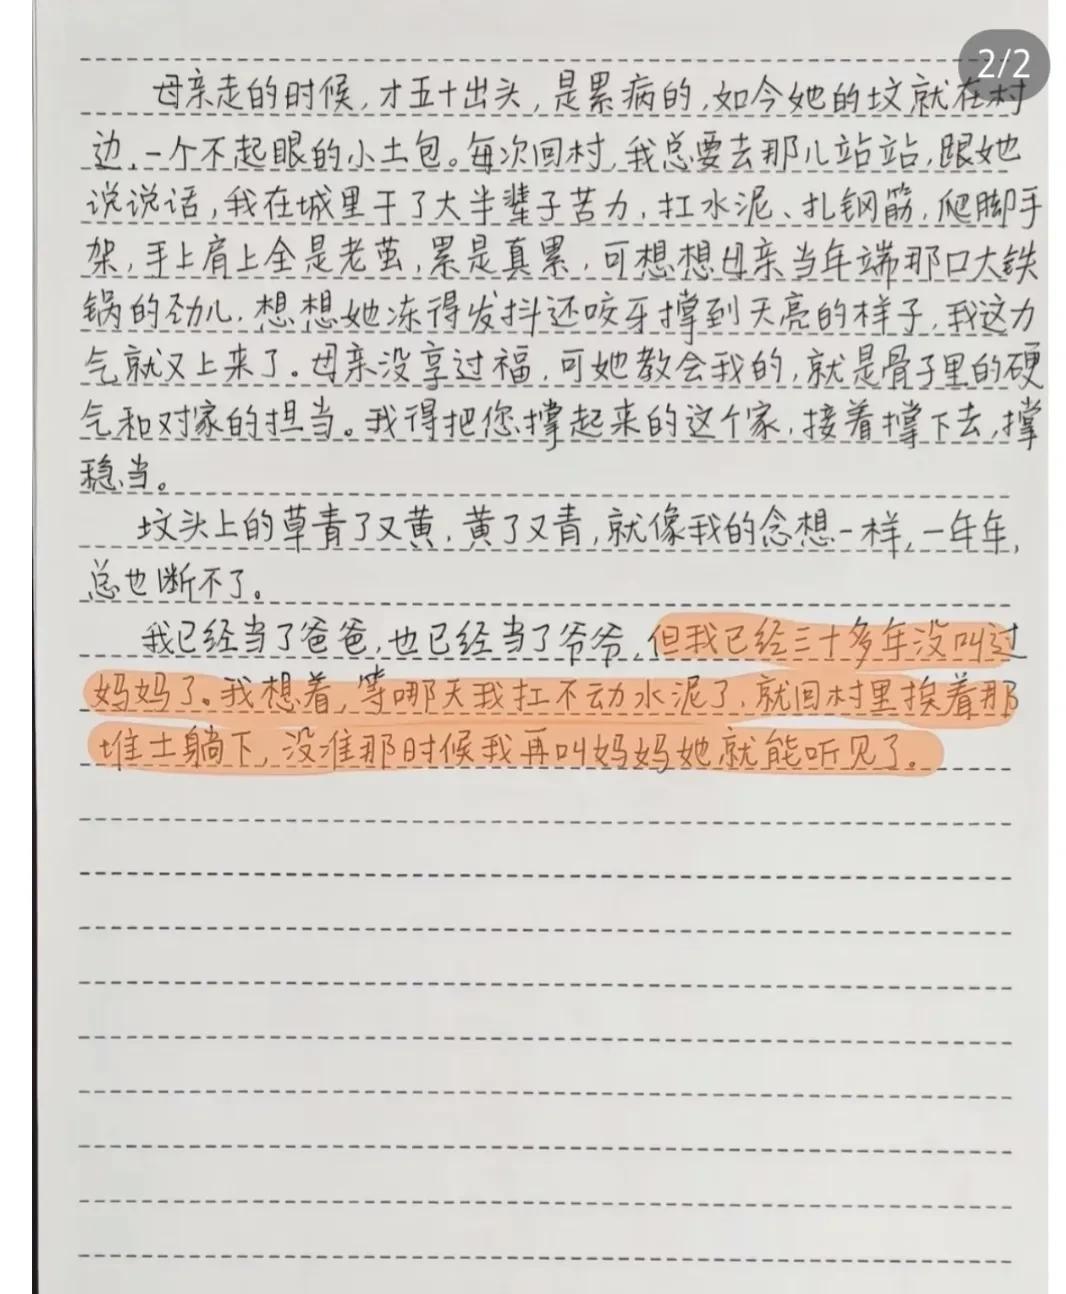 2/2
母亲走的时候,才五十出头,是累病的,如今她的坟就在村
边,一个不起眼的小土包。每次回村,我总要去那儿站站,跟她
说说话,我在城里干了大半辈子苦力,扛水泥、扎钢筋,爬脚手
架,手上肩上全是老茧,累是真累,可想想母亲当年端那口大铁
锅的劲儿,想想她冻得发抖还咬牙撑到天亮的样子,我这力
气就又上来了。母亲没享过福,可她教会我的,就是骨子里的硬
气和对家的担当。我得把您撑起来的这个家,接着撑下去,撑
稳当。
坟头上的草青了又黄,黄了又青,就像我的念想一样,一年年,
总也断不了。
我已经当了爸爸,也已经当了爷爷,但我已经三十多年没叫过
妈妈了。我想着,等哪天我扛不动水泥了,就回村里挨着那
堆土躺下,没准那时候我再叫妈妈她就能听见了。